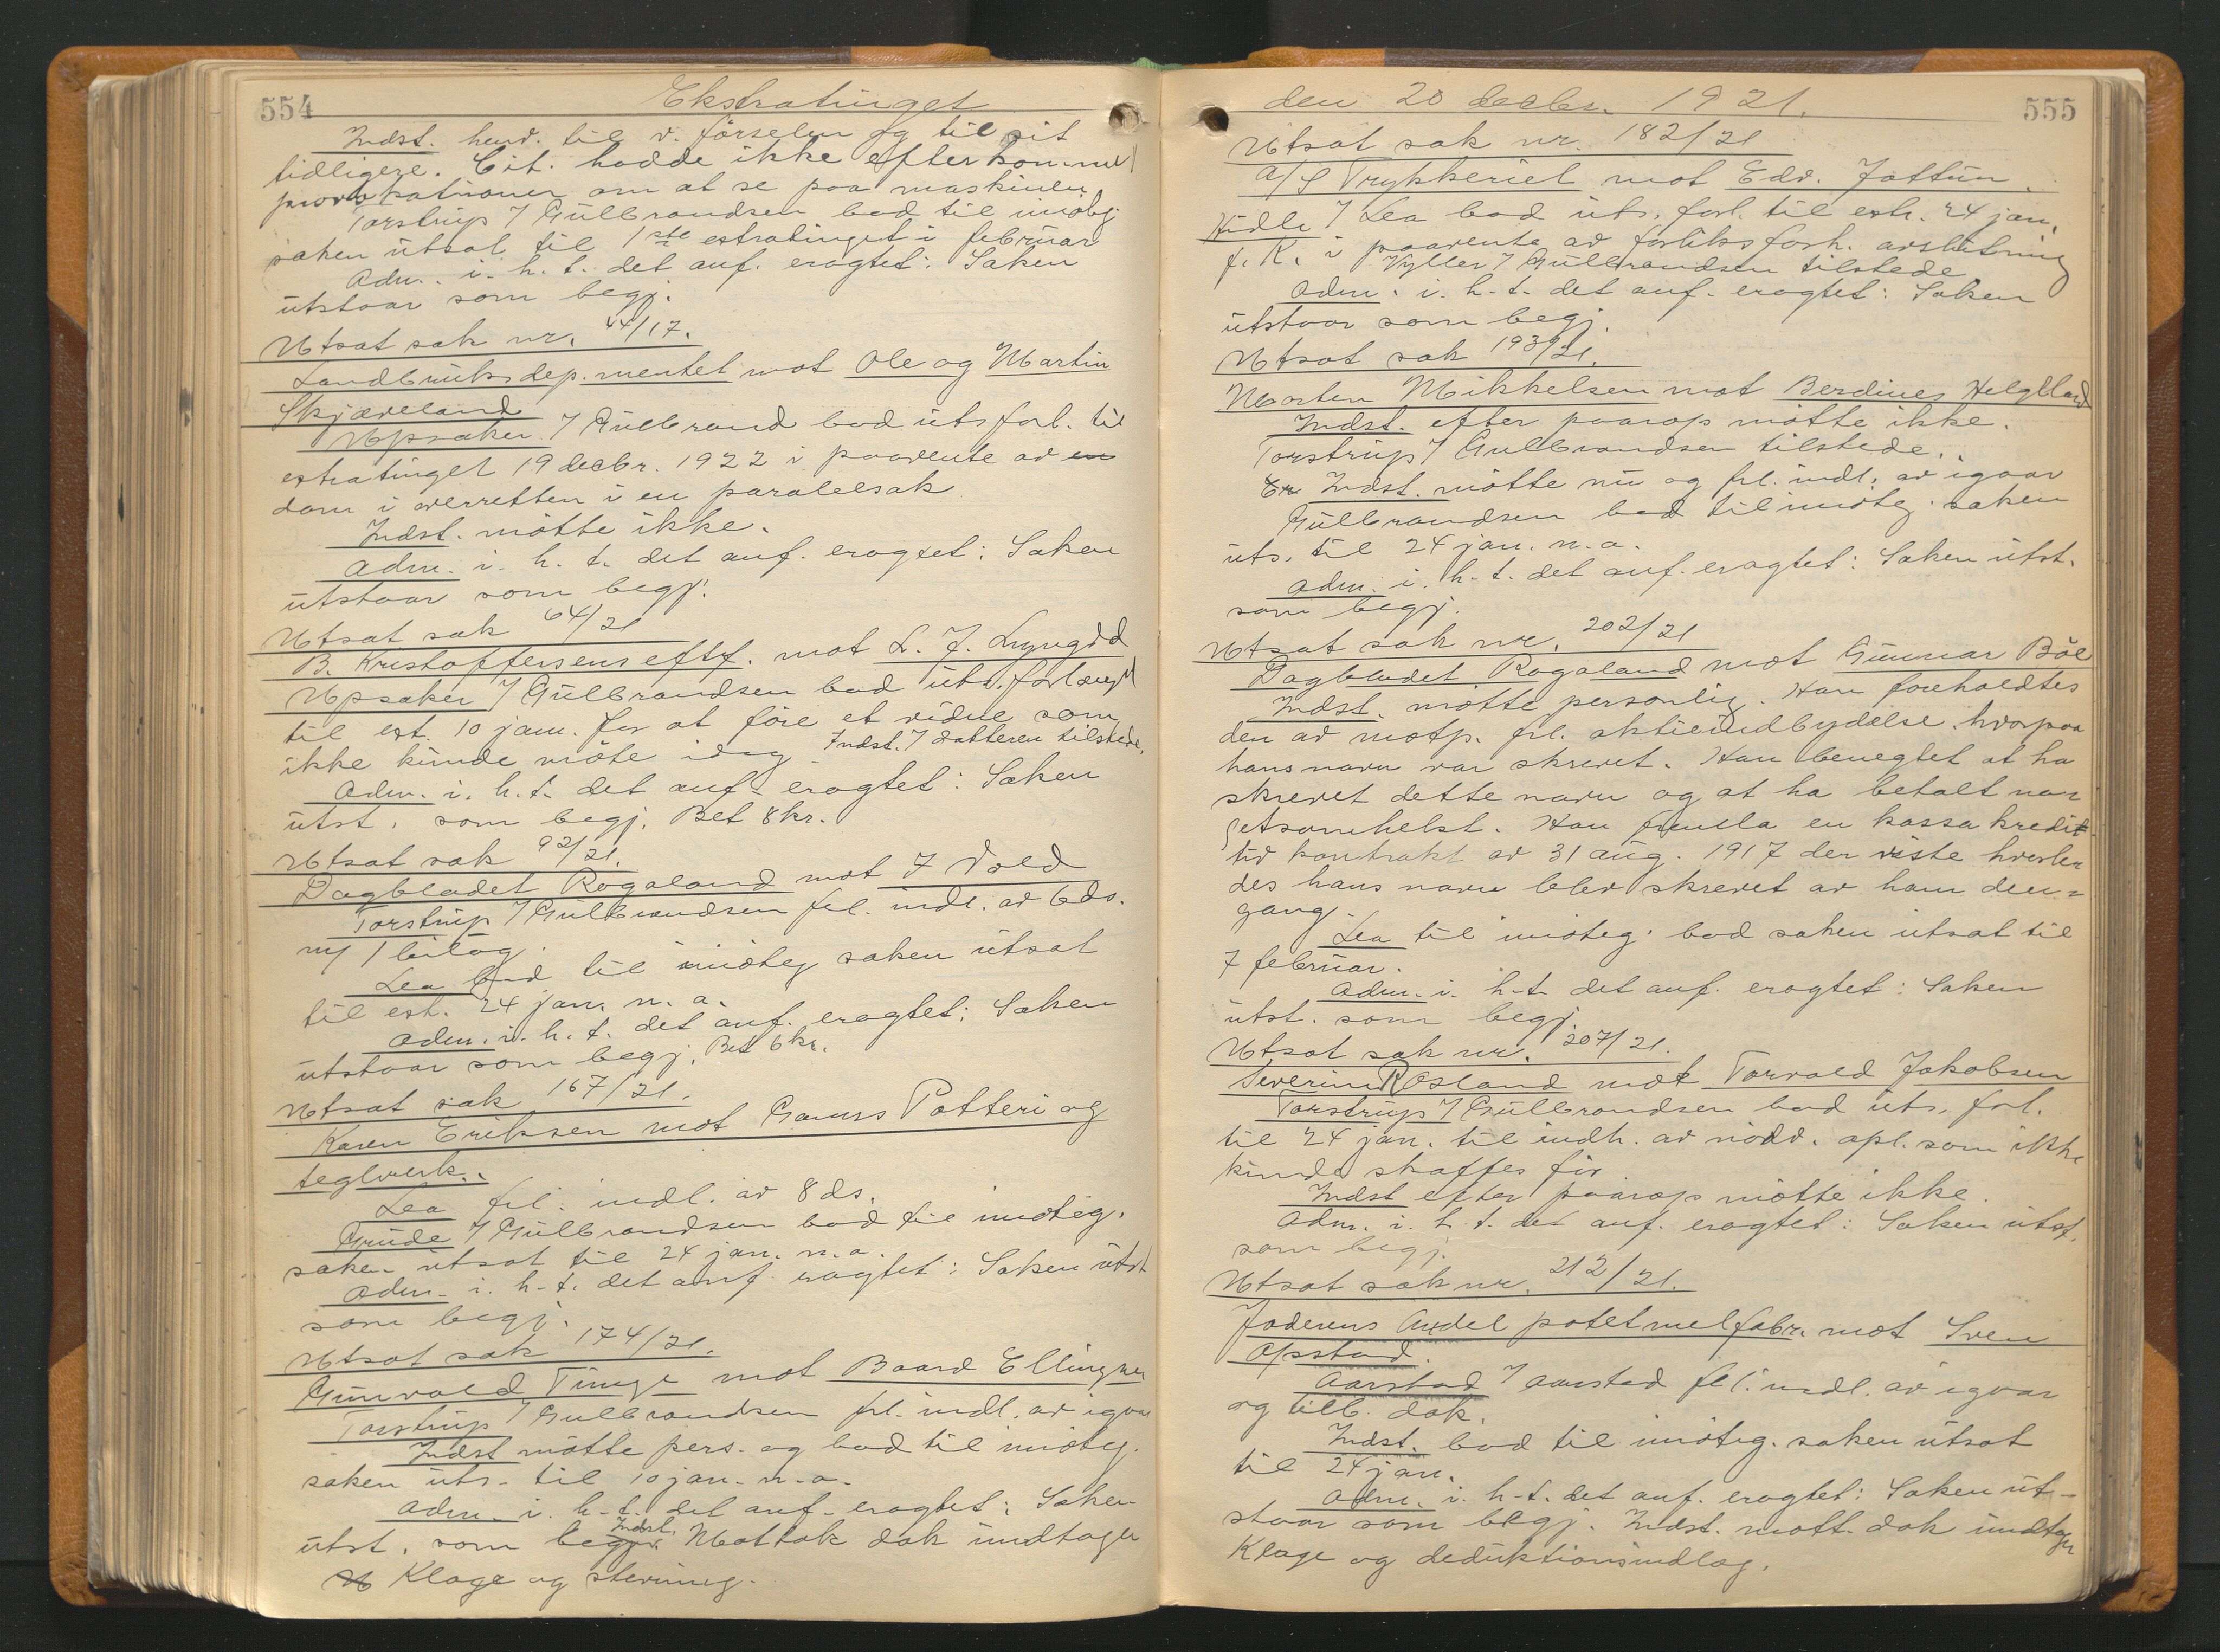 554
Ekstratinget
Indst. henv. til v. förselen og til sit
tidligere. Cit. hadde ikke efterkommet
provokationer om at se paa maskinen.
Torstrup / Gülbrandsen bad til imöteg.
saken ütsat til 1ste extratinget i februar
Adm. i. h. t. det anf. eragtet: Saken
ütstaar som begj.
Utsat sak nr. 44/17.
Landbrüksdep.mentet mot Ole og Martin
Skjæveland
Upsaker / Gülbrand bad üts. forl. til
extratinget 19 decbr. 1922 i paavente av en
dom i overretten i en paralelsak.
Indst. mötte ikke.
Adm. i. h. t. det anf. eragtet: Saken
ütstaar som begj.
Utsat sak 64/21
B. Kristoffersens eftf. mot L. J. Lyngdd
Upsaker / Gülbrandsen bad üts. forlænget
til ext. 10 jan. for at före et vidne som
ikke künde möte idag. Indst. / datteren tilstede.
Adm. i. h. t. det anf. eragtet: Saken
ütst. som begj. Bet 8 kr.
Utsat sak 92/21.
Dagbladet Rogaland mot F Vold
Torstrup / Gülbrandsen frl. indl. av 6 ds.
m/ 1 bilag.
Lea bad til imöteg saken ütsat
til ext. 24 jan. n. a.
Adm. i. h. t. det anf. eragtet: Saken
ütstaar som begj. Bet 6 kr.
Utsat sak 167/21.
Karen Eriksen mot Ganns Potteri og
teglverk.
Lea frl. indl. av 8 ds.
Grüde / Gülbrandsen bad til imöteg.
saken ütsat til 24 jan. n. a.
Adm. i. h. t. det anf. eragtet: Saken ütst
som begj.
Utsat sak 174/21.
Günvald Tunge mot Baard Ellingsen
Torstrup / Gülbrandsen frl. indl. av igaar
Indst mötte pers. og bad til imöteg.
saken üts. til 10 jan. n. a.
Adm. i. h. t. det anf. eragtet: Saken
ütst. som begj. Indst. Mottok dok ündtagen
Klage og stevning.
den 20 decbr. 1921.
555
Utsat sak nr. 182/21
A/S Trykkeriet mot Edv. Jattün.
Hidle / Lea bad üts. forl. til extr. 24 jan.
f. K. i paavente av forliksforh. avslutning
Vyller / Gülbrandsen tilstede
Adm. i. h. t. det anf. eragtet: Saken
ütstaar som begj.
Utsat sak 193/21.
Morten Mikkelsen mot Berdines Helgeland
Indst. efter paarop mötte ikke.
Torstrup / Gulbrandsen tilstede.
Indst. mötte nü og frl. indl. av igaar
Gülbrandsen bad til imöteg. saken
üts. til 24 jan. n. a.
Adm. i. h. t. det anf. eragtet: Saken ütst.
som begj.
Utsat sak nr. 202/21
Dagbladet Rogaland mot Günnar Böe
Indst. mötte personlig. Han foreholdtes
den av motp. frl. aktieindbydelse hvorpaa
hans navn var skrevet. Han benegtet at ha
skrevet dette navn og at ha betalt noe
etsomhelst. Han fremla en kassakredit-
tiv kontrakt av 31 aüg. 1917 der viste hvorlen
des hans navn blev skrevet av ham den-
gang.
Lea til imöteg. bad saken ütsat til
7 februar.
Adm. i. h. t. det anf. eragtet: Saken
ütst. som begj.
Utsat sak nr. 207/21.
Severin R Osland mot Torvald Jakobsen
Torstrup / Gülbrandsen bad üts. forl.
til 24 jan. til indh. av nödv. opl. som ikke
künde skaffes för
Indst efter paarop mötte ikke.
Adm. i. h. t. det anf. eragtet: Saken ütst.
som begj.
Utsat sak nr. 212/21.
Jæderens Andel potetmelfabr. mot Sven
Opstad.
Aarstad / Aarstad frl. indl. av igaar
og tilb. dok.
Indst. bad til imöteg. saken ütsat
til 24 jan.
Adm. i. h. t. det anf. eragtet: Saken üt-
staar som begj. Indst. mott. dok ündtagen
Klage og dedüktionsindlæg.